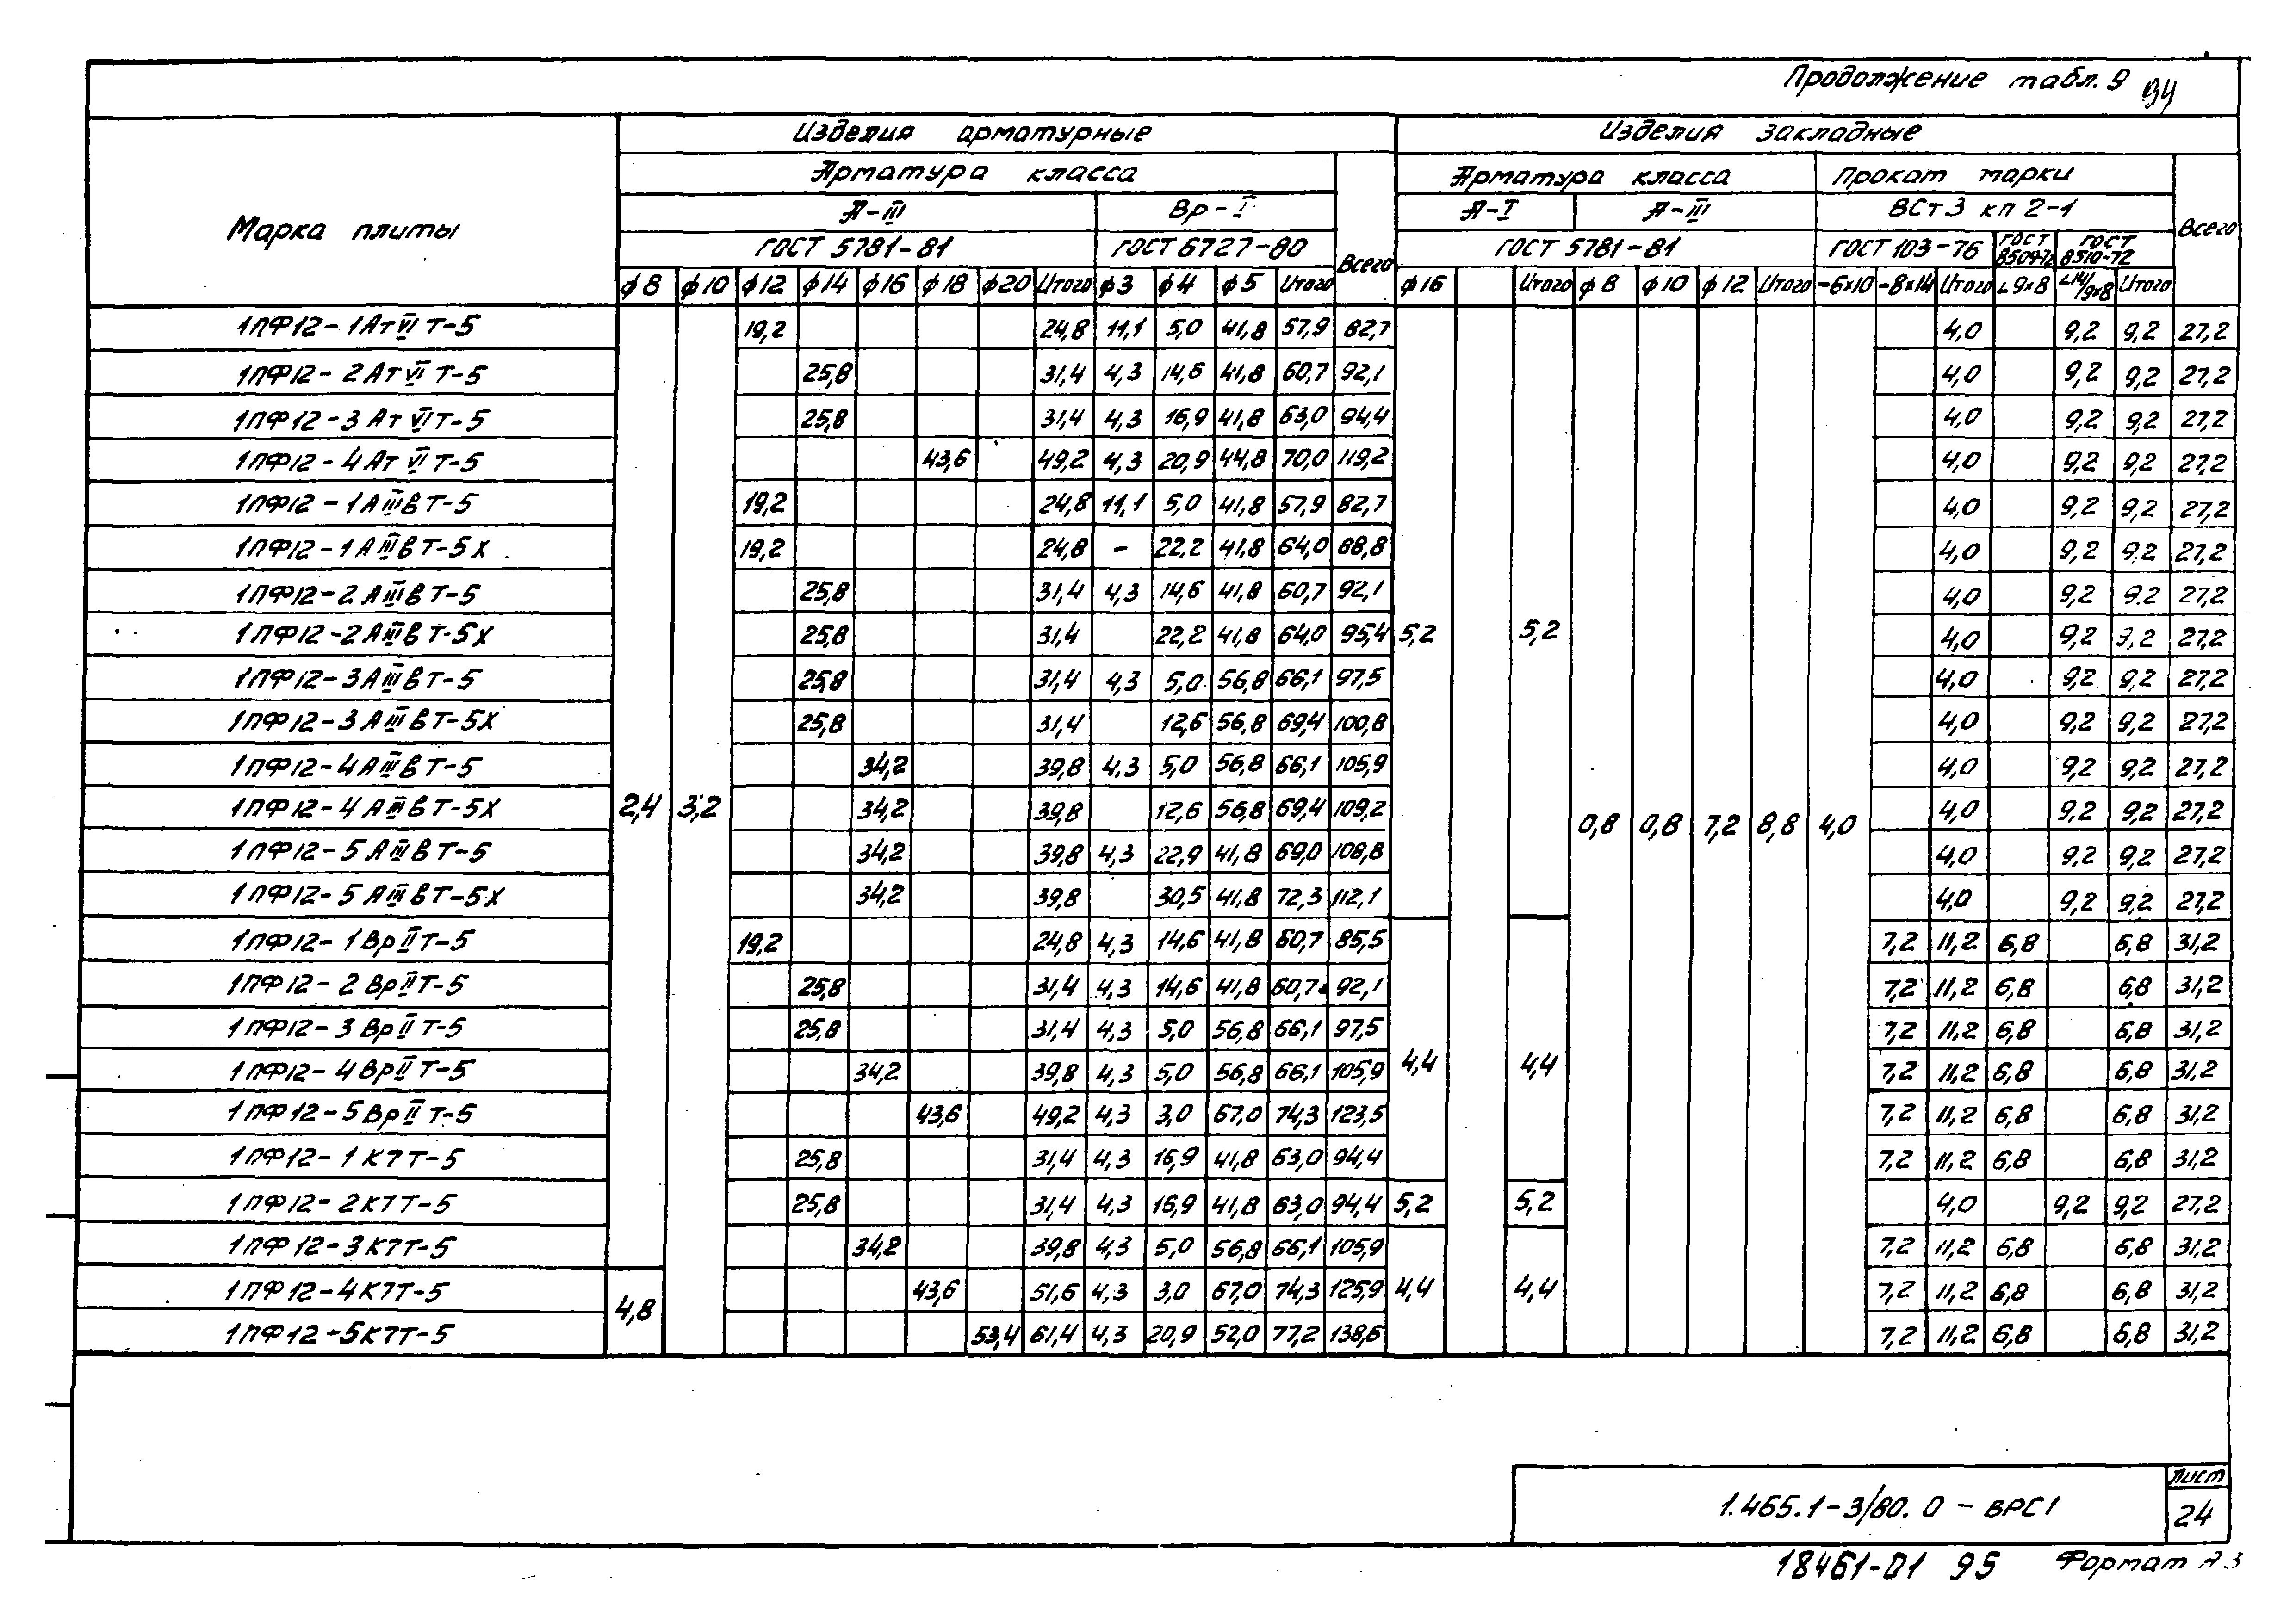 Продолжение табл. 9 94
Марка плиты
Изделия арматурные
Изделия закладные
Арматура класса
Всего
Арматура класса
Прокат марки
Всего
А-III
Вр-I
А-I
А-III
ВСт3 кп 2-1
ГОСТ 5781-81
ГОСТ 6727-80
ГОСТ 5781-81
ГОСТ 103-76
ГОСТ 8509-72
ГОСТ 8510-72
ф8 ф10 ф12 ф14 ф16 ф18 ф20 Итого ф3 ф4 ф5 Итого ф16 Итого ф8 ф10 ф12 Итого -6×10 -8×14 Итого L9×8 L14/9×8 Итого
1ПФ12-1АтVIТ-5 19,2 24,8 11,1 5,0 41,8 57,9 82,7 4,0 9,2 9,2 27,2
1ПФ12-2АтVIТ-5 25,8 31,4 4,3 14,6 41,8 60,7 92,1 4,0 9,2 9,2 27,2
1ПФ12-3АтVIТ-5 25,8 31,4 4,3 16,9 41,8 63,0 94,4 4,0 9,2 9,2 27,2
1ПФ12-4АтVIТ-5 43,6 49,2 4,3 20,9 44,8 70,0 119,2 4,0 9,2 9,2 27,2
1ПФ12-1АIIIвТ-5 19,2 24,8 11,1 5,0 41,8 57,9 82,7 4,0 9,2 9,2 27,2
1ПФ12-1АIIIвТ-5Х 19,2 24,8 - 22,2 41,8 64,0 88,8 4,0 9,2 9,2 27,2
1ПФ12-2АIIIвТ-5 25,8 31,4 4,3 14,6 41,8 60,7 92,1 4,0 9,2 9,2 27,2
1ПФ12-2АIIIвТ-5Х 25,8 31,4 22,2 41,8 64,0 95,4 5,2 5,2 4,0 9,2 9,2 27,2
1ПФ12-3АIIIвТ-5 25,8 31,4 4,3 5,0 56,8 66,1 97,5 4,0 9,2 9,2 27,2
1ПФ12-3АIIIвТ-5Х 25,8 31,4 12,6 56,8 69,4 100,8 4,0 9,2 9,2 27,2
1ПФ12-4АIIIвТ-5 34,2 39,8 4,3 5,0 56,8 66,1 105,9 4,0 9,2 9,2 27,2
1ПФ12-4АIIIвТ-5Х 2,4 3,2 34,2 39,8 12,6 56,8 69,4 109,2 0,8 0,8 7,2 8,8 4,0 4,0 9,2 9,2 27,2
1ПФ12-5АIIIвТ-5 34,2 39,8 4,3 22,9 41,8 69,0 108,8 4,0 9,2 9,2 27,2
1ПФ12-5АIIIвТ-5Х 34,2 39,8 30,5 41,8 72,3 112,1 4,0 9,2 9,2 27,2
1ПФ12-1ВрIIТ-5 19,2 24,8 4,3 14,6 41,8 60,7 85,5 7,2 11,2 6,8 6,8 31,2
1ПФ12-2ВрIIТ-5 25,8 31,4 4,3 14,6 41,8 60,7 92,1 7,2 11,2 6,8 6,8 31,2
1ПФ12-3ВрIIТ-5 25,8 31,4 4,3 5,0 56,8 66,1 97,5 7,2 11,2 6,8 6,8 31,2
1ПФ12-4ВрIIТ-5 34,2 39,8 4,3 5,0 56,8 66,1 105,9 4,4 4,4 7,2 11,2 6,8 6,8 31,2
1ПФ12-5ВрIIТ-5 43,6 49,2 4,3 3,0 67,0 74,3 123,5 7,2 11,2 6,8 6,8 31,2
1ПФ12-1К7Т-5 25,8 31,4 4,3 16,9 41,8 63,0 94,4 7,2 11,2 6,8 6,8 31,2
1ПФ12-2К7Т-5 25,8 31,4 4,3 16,9 41,8 63,0 94,4 5,2 5,2 4,0 9,2 9,2 27,2
1ПФ12-3К7Т-5 34,2 39,8 4,3 5,0 56,8 66,1 105,9 7,2 11,2 6,8 6,8 31,2
1ПФ12-4К7Т-5 4,8 43,6 51,6 4,3 3,0 67,0 74,3 125,9 4,4 4,4 7,2 11,2 6,8 6,8 31,2
1ПФ12-5К7Т-5 53,4 61,4 4,3 20,9 52,0 77,2 138,6 7,2 11,2 6,8 6,8 31,2
1.465.1-3/80.0-ВРС1
Лист
24
18461-01 95 Формат А3